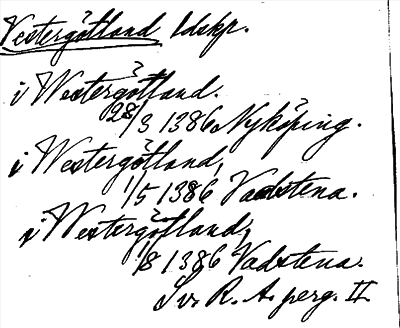 Vestergötland ldskp.
i Westergötland.
28/3 1386 Nyköping.
i Westergötland,
1/5 1386 Vadstena.
i Westergötland,
1/8 1386 Vadstena.
Sv. R. A. perg. II